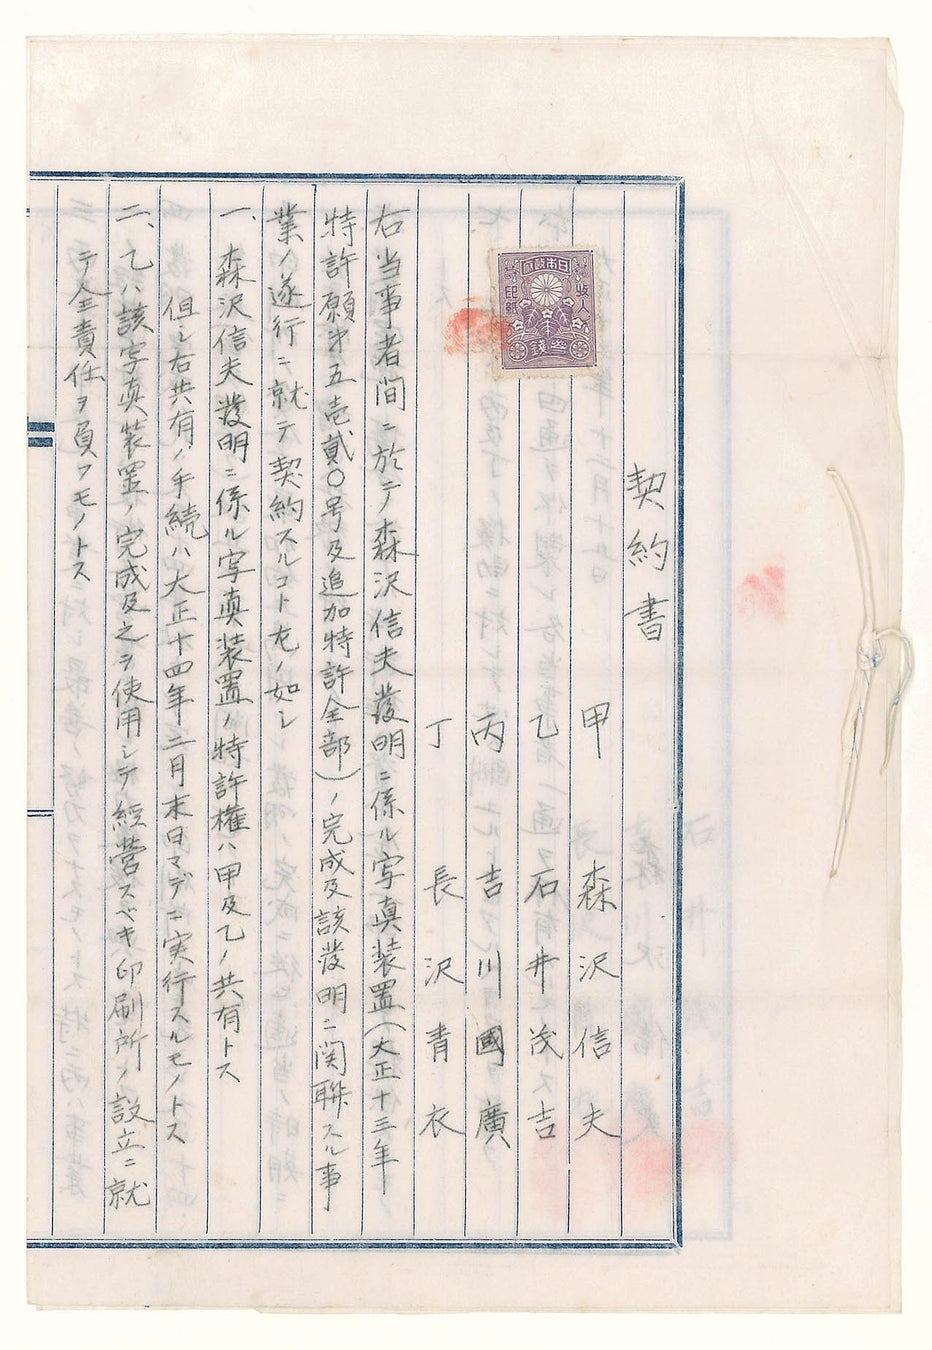 契約書
甲 森沢信夫
乙 石井茂吉
丙 吉川國廣
丁 長沢青衣
右当事者間ニ於テ森沢信夫發明ニ係ル写真装置(大正十三年
特許願第五壱貳〇号及追加特許全部)ノ完成及該發明ニ関聯スル事
業ノ遂行ニ就テ契約スルコト左ノ如シ
一、森沢信夫發明ニ係ル写真装置ノ特許權ハ甲及乙ノ共有トス
但シ右共有ノ手続ハ大正十四年二月末日マデニ実行スルモノトス
二、乙ハ該写真装置ノ完成及之ヲ使用シテ経營スベキ印刷所ノ設立ニ就
テ全責任ヲ負フモノトス
日本政府
収入印紙
参錢